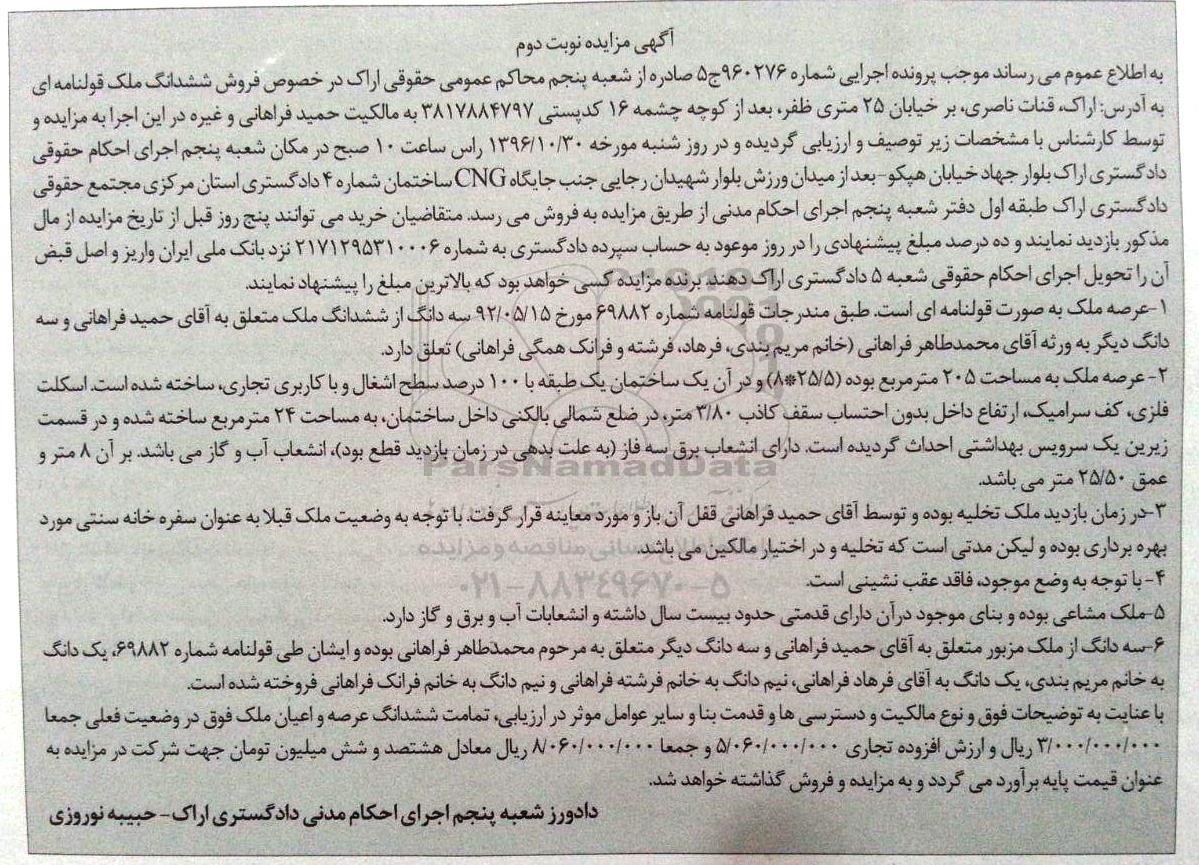 آگهی مزایده نوبت دوم
به اطلاع عموم می رساند موجب پرونده اجرایی شماره ۹۶۰۲۷۶ج۵ صادره از شعبه پنجم محاکم عمومی حقوقی اراک در خصوص فروش ششدانگ ملک قولنامه ای
به آدرس: اراک، قنات ناصری، بر خیابان ۲۵ متری ظفر، بعد از کوچه چشمه ۱۶ کدپستی ۳۸۱۷۸۸۴۷۹۷ به مالکیت حمید فراهانی و غیره در این اجرا به مزایده و
توسط کارشناس با مشخصات زیر توصیف و ارزیابی گردیده و در روز شنبه مورخه ۱۳۹۶/۱۰/۳۰ راس ساعت ۱۰ صبح در مکان شعبه پنجم اجرای احکام حقوقی
دادگستری اراک بلوار جهاد خیابان هپکو-بعد از میدان ورزش بلوار شهیدان رجایی جنب جایگاه CNG ساختمان شماره ۴ دادگستری استان مرکزی مجتمع حقوقی
دادگستری اراک طبقه اول دفتر شعبه پنجم اجرای احکام مدنی از طریق مزایده به فروش می رسد. متقاضیان خرید می توانند پنج روز قبل از تاریخ مزایده از مال
مذکور بازدید نمایند و ده درصد مبلغ پیشنهادی را در روز موعود به حساب سپرده دادگستری به شماره ۲۱۷۱۲۹۵۳۱۰۰۰۶ نزد بانک ملی ایران واریز و اصل قبض
آن را تحویل اجرای احکام حقوقی شعبه ۵ دادگستری اراک دهند. برنده مزایده کسی خواهد بود که بالاترین مبلغ را پیشنهاد نمایند.
۱-عرصه ملک به صورت قولنامه ای است. طبق مندرجات قولنامه شماره ۶۹۸۸۲ مورخ ۹۲/۰۵/۱۵ سه دانگ از ششدانگ ملک متعلق به آقای حمید فراهانی و سه
دانگ دیگر به ورثه آقای محمدطاهر فراهانی (خانم مریم بندی، فرهاد، فرشته و فرانک همگی فراهانی) تعلق دارد.
۲- عرصه ملک به مساحت ۲۰۵ مترمربع بوده (۲۵/۵*۸) و در آن یک ساختمان یک طبقه با ۱۰۰ درصد سطح اشغال و با کاربری تجاری، ساخته شده است. اسکلت
فلزی، کف سرامیک، ارتفاع داخل بدون احتساب سقف کاذب ۳/۸۰ متر، در ضلع شمالی بالکنی داخل ساختمان، به مساحت ۲۴ مترمربع ساخته شده و در قسمت
زیرین یک سرویس بهداشتی احداث گردیده است. دارای انشعاب برق سه فاز (به علت بدهی در زمان بازدید قطع بود)، انشعاب آب و گاز می باشد. بر آن ۸ متر و
عمق ۲۵/۵۰ متر می باشد.
۳-در زمان بازدید ملک تخلیه بوده و توسط آقای حمید فراهانی قفل آن باز و مورد معاینه قرار گرفت. با توجه به وضعیت ملک قبلا به عنوان سفره خانه سنتی مورد
بهره برداری بوده و لیکن مدتی است که تخلیه و در اختیار مالکین می باشد.
۴- با توجه به وضع موجود، فاقد عقب نشینی است.
۵-ملک مشاعی بوده و بنای موجود درآن دارای قدمتی حدود بیست سال داشته و انشعابات آب و برق و گاز دارد.
۶-سه دانگ از ملک مزبور متعلق به آقای حمید فراهانی و سه دانگ دیگر متعلق به مرحوم محمدطاهر فراهانی بوده و ایشان طی قولنامه شماره ۶۹۸۸۲، یک دانگ
به خانم مریم بندی، یک دانگ به آقای فرهاد فراهانی، نیم دانگ به خانم فرشته فراهانی و نیم دانگ به خانم فرانک فراهانی فروخته شده است.
با عنایت به توضیحات فوق و نوع مالکیت و دسترسی ها و قدمت بنا و سایر عوامل موثر در ارزیابی، تمامت ششدانگ عرصه و اعیان ملک فوق در وضعیت فعلی جمعا
۳/۰۰۰/۰۰۰/۰۰۰ ریال و ارزش افزوده تجاری ۵/۰۶۰/۰۰۰/۰۰۰ و جمعا ۸/۰۶۰/۰۰۰/۰۰۰ ریال معادل هشتصد و شش میلیون تومان جهت شرکت در مزایده به
عنوان قیمت پایه برآورد می گردد و به مزایده و فروش گذاشته خواهد شد.
دادورز شعبه پنجم اجرای احکام مدنی دادگستری اراک- حبیبه نوروزی
ParsNamadData
۰۲۱-۸۸۳۴۹۶۷۰-۵